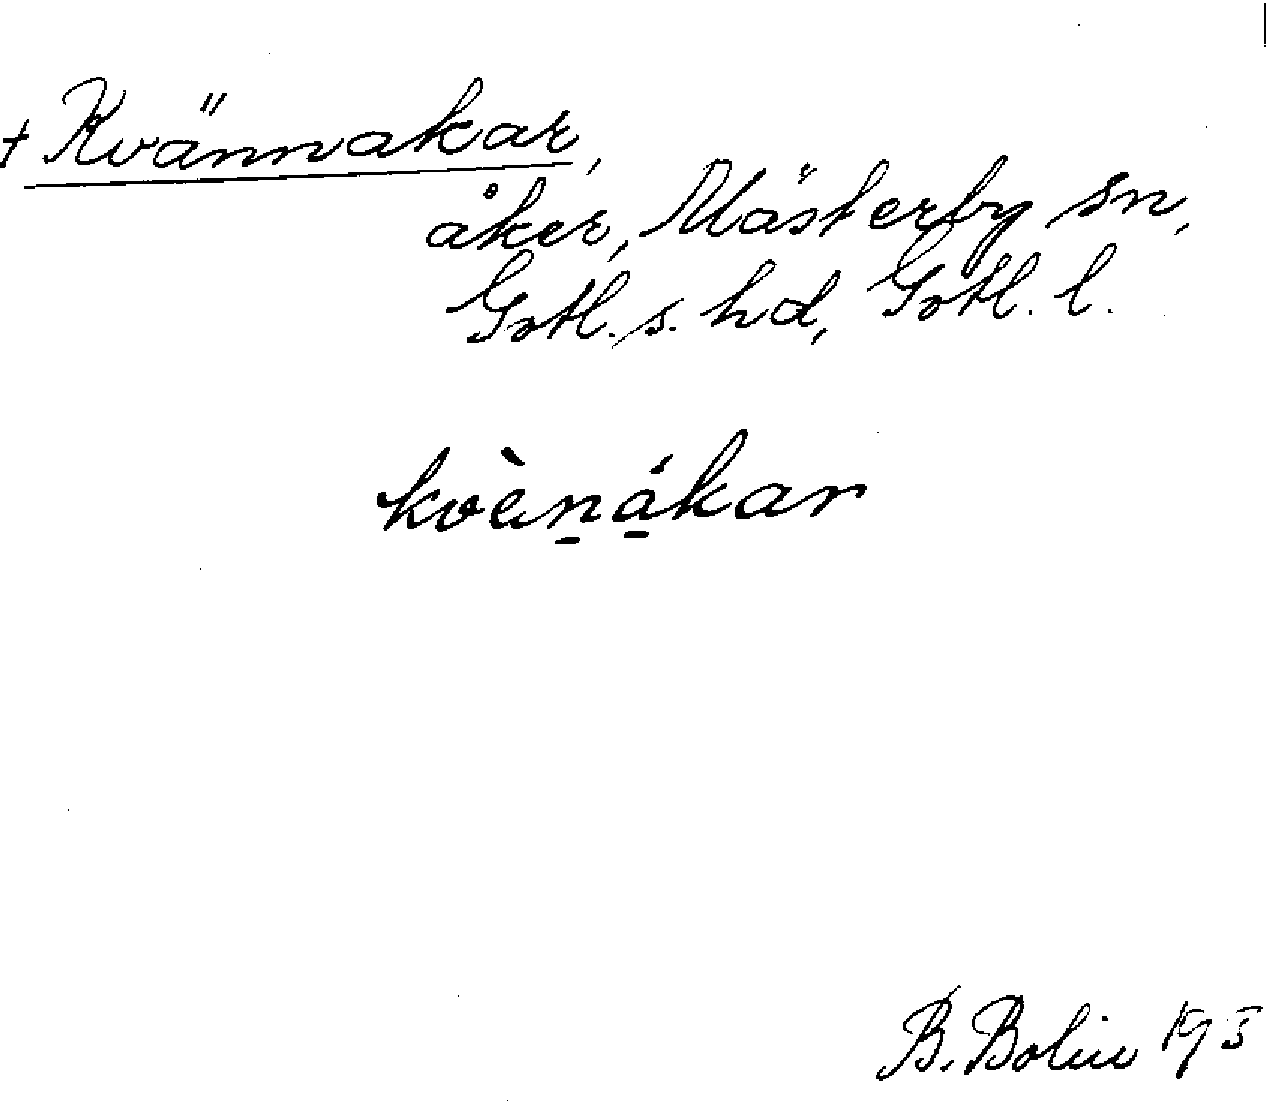 + Kvännakar,
åker, Mästerby sn,
Gotl. s. hd, Gotl. l.
kvèn̲á̲kar
B. Bolin 193